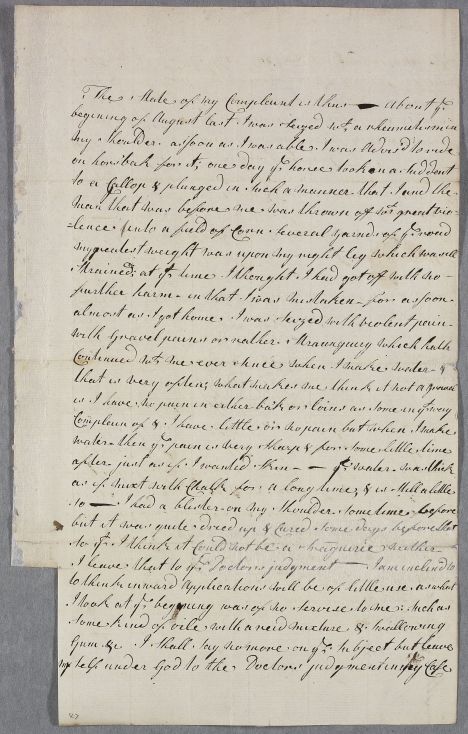 The State of my Complaint is thus — About ye
begining of August last I was Seized wt a rhumatism in
my Shoulder. as soon as I was able I was Advis'd to ride
on horsbak for it; one day ye horse took on a Suddent
to a Gallop & plunged in Such a manner that I and the
man that was before me was thrown off wt great vio-
=lence into a field of Corn Several yards of ye road
my greatest weight was upon my right leg which was well
Strained; at ye time I thought I had got off with no
further harm - in that I was mistaken - for as soon
almost as I got home I was Seized with violent pain
with Gravel pains or rather Strangury which hath
Continued wt me ever Since when I make water - &
that is very often; what makes me think it not a Gravel
is I have no pain in either back or loins as Some in gravy
Complain of & I have little or no pain but when I make
water - then ye pain is very Sharp & for Some little time
after just as if I wanted Skin - — ye water was thick
as if mixt with Chalk for a long time; & is Still a little
So — I had a blister on my Shoulder Some time before
but it was quite dreed up & Cured Some days before that
So yt I think it Could not be a Stragurie neither -
I leave that to ye Doctors judgment — I am inclind to
to think inward Applications will be of little use, as what
I took at ye begining was of no Service to me: Such as
Some kind of oile with a reid mixture & Swallowing
Gum &c I Shall Say no more on ye Subject but leave
my Self under God to the Doctors judgment in my Case